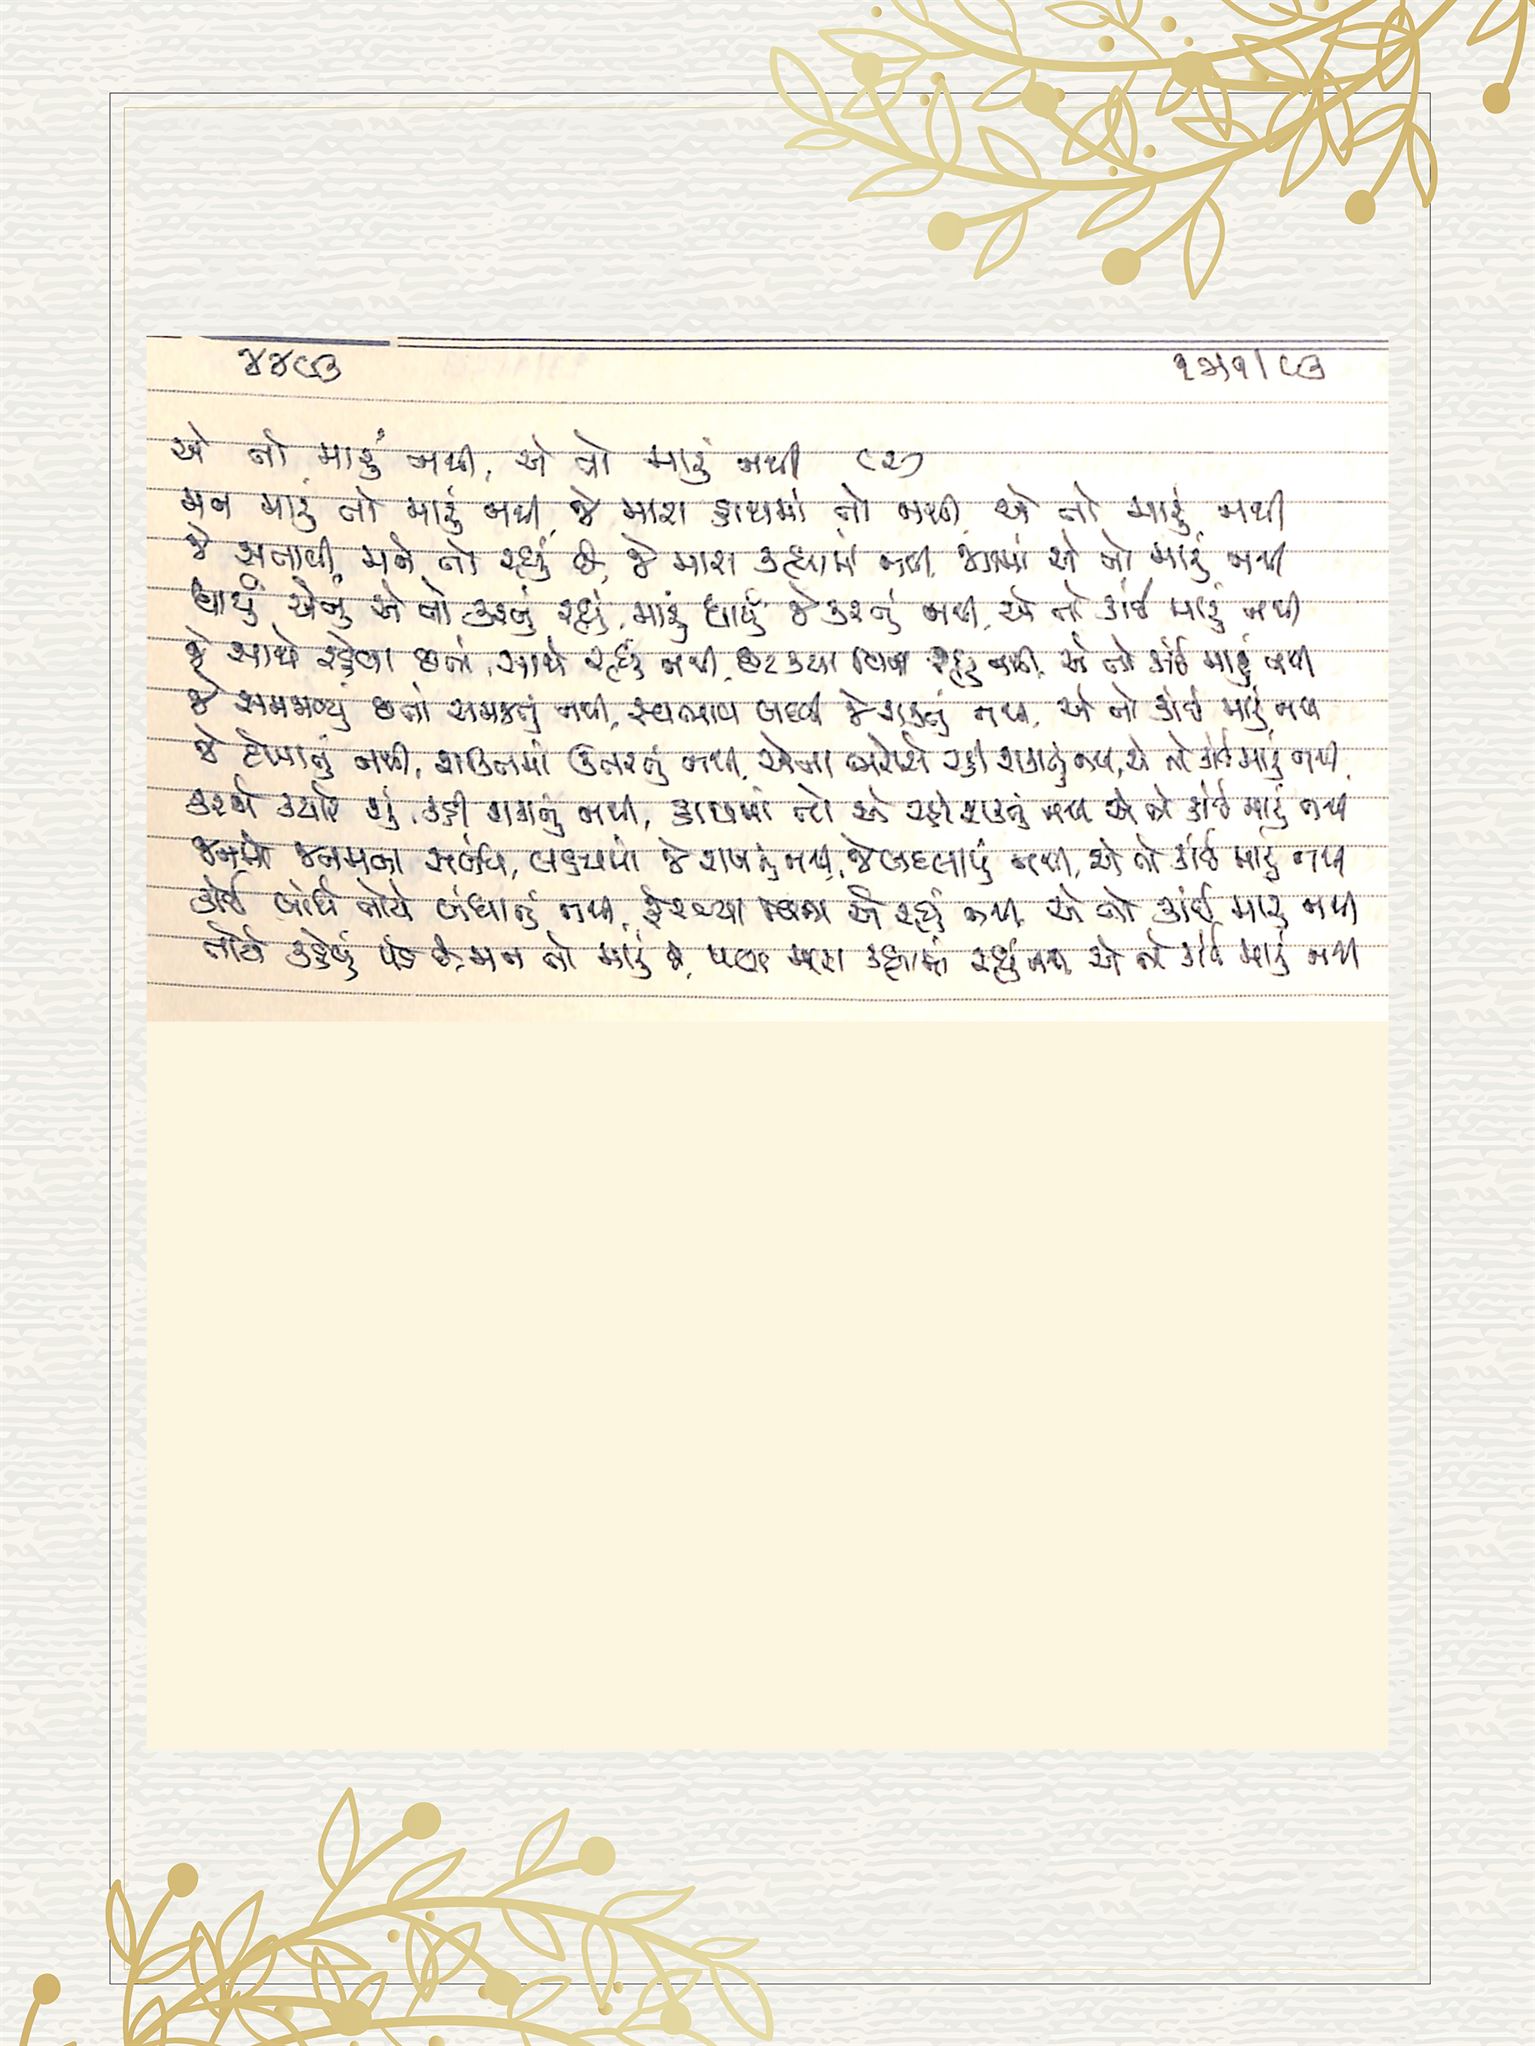 એ તો મારું નથી, એ તો મારું નથી (૨)
મન મારું તો મારું નથી, જે મારા હાથમાં તો નથી, એ તો મારું નથી
જે સતાવી મને તો રહ્યું છે, જે મારા કહ્યામાં નથી, એ તો મારું નથી
ધાર્યું એનું એ તો કરતું રહ્યું, મારું ધાર્યું જે કરતું નથી, એ તો કાંઈ મારું નથી
જે સાથે રહેવા છતાં, સાથે રહ્યું નથી, છટક્યા વિના રહ્યું નથી, એ તો કાંઈ મારું નથી
જે સમજાવ્યું છતાં સમજતું નથી, સ્વભાવ બદલી જે શકતું નથી, એ તો કાંઈ મારું નથી
જે દેખાતું નથી, ઉતરતું નથી, એના ભરોસે રહી શકાતું નથી, એ તો કાંઈ મારું નથી
કરશે ક્યારે શું, કહી શકાતું નથી, હાથમાં તો એ રહી શકતું નથી, એ તો કાંઈ મારું નથી
જનમો જનમના સંબંધ, લક્ષ્યમાં જે રાખતું નથી, જે બદલાયું નથી, એ તો કાંઈ મારું નથી
કોઈ બાંધે તોયે બંધાતું નથી, ફેરવ્યા વિના એ રહ્યું નથી, એ તો કાંઈ મારું નથી
તોયે કહેવું પડે છે, મન તો મારું છે, પણ મારા કહ્યામાં રહ્યું નથી, એ તો કાંઈ મારું નથી